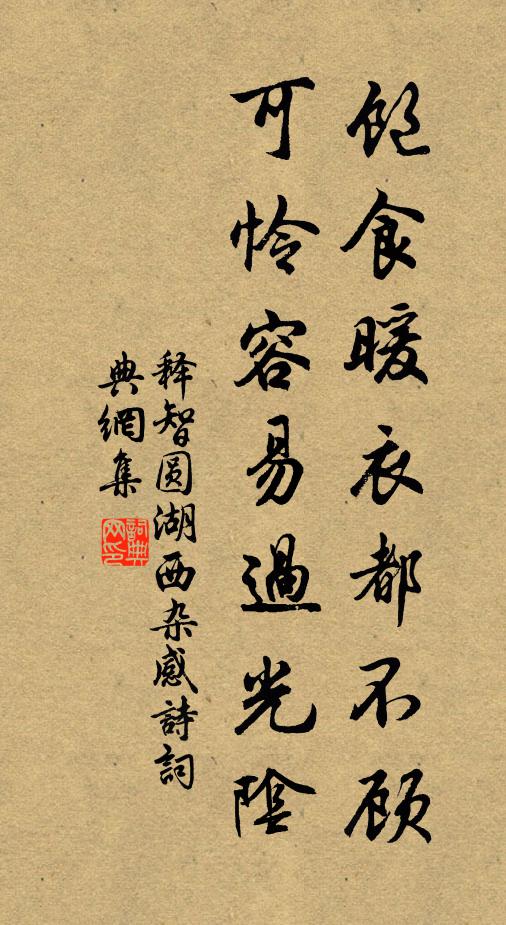 飽食暖衣都不顾
可怜容易過光陰
释智圆湖西杂感詩詞
典網集
詞典网印